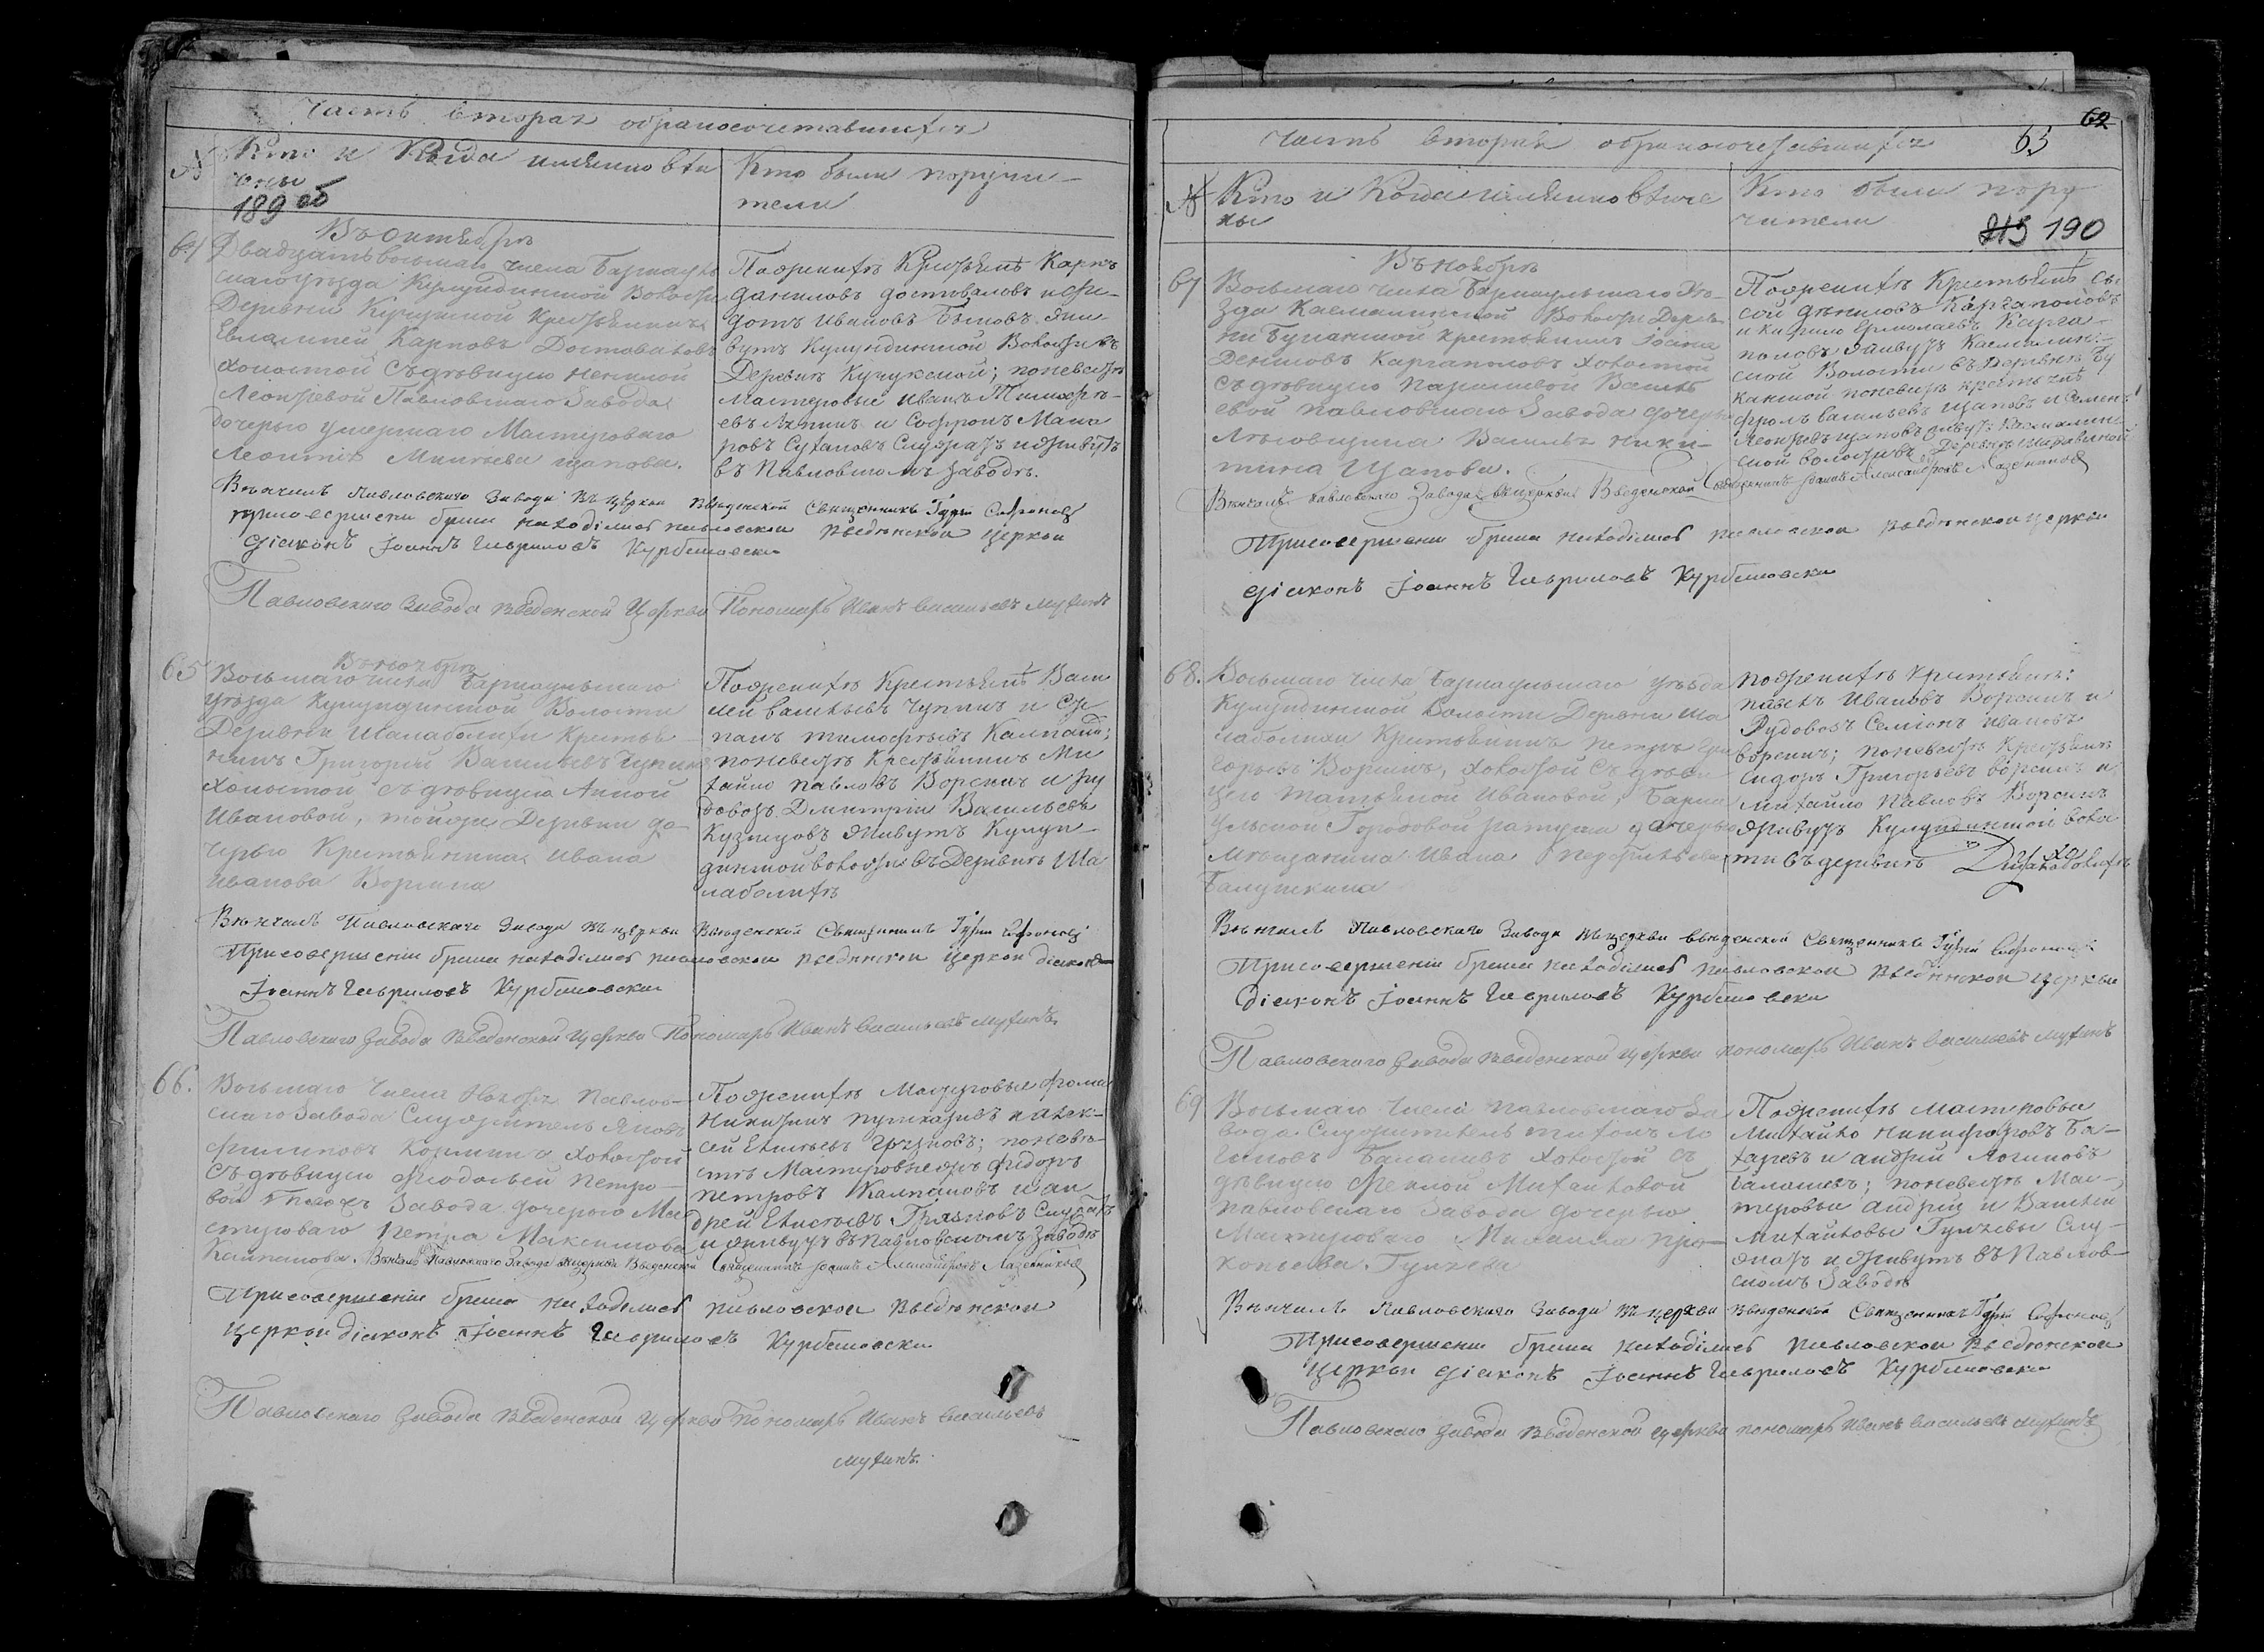 Часть вторая обракосочетавшихся
№
Кто и Когда имянно вен
чены
Кто были поручи-
тели
189 об
64
Въ Октябре
Двадцать восьмаго числа Барнауль
скаго уезда Кулундинской Волости
Деревни Кучукской Крестьянинъ
Евлампей Карповъ Достоваловъ
холостой съ девицею Ненилой
Леонтьевой Павловскаго Завода
дочерью умершаго Мастероваго
Леонтия Щапова.
По женихе Крестьяне Карпъ
Даниловъ Достоваловъ и Фе-
дотъ Ивановъ Беловъ жи-
вутъ Кулундинской Волости въ
Деревне Кучукской; по невесте
мастеровые Иванъ Тимофе-
евъ Ляпинъ и Софронъ Мака
ровъ Сухановъ Служатъ и живутъ
въ Павловскомъ Заводе.
Венчалъ Павловскаго Завода въ церкви Введенской Священникъ Гурий
При совершении брака находился Павловской Введенской церкви
Диаконъ Иоаннъ Гавриловъ
Павловскаго Завода Введенской Церкви Пономарь Иванъ Васильевъ Мухинъ
65
Въ ноябре
Восьмаго числа Барнаульскаго
уезда Кулундинской Волости
Деревни Шелаболихи Крестья-
нинъ Григорий Васильевъ Чупинъ
Холостой съ девицею Анной
Ивановой, той же Деревни до-
черью Крестьянина Ивана
Иванова Ворсина
По женихе Крестьяне Васи
лей Васильевъ Чупинъ и Сте
панъ Тимофеевъ
по невесте Крестьянинъ Ми
хайло Павловъ Ворсинъ и ру
довозъ Дмитрий Васильевъ
Кузнецовъ живутъ Кулун-
динской волости въ Деревне Ше
лаболихе
Венчалъ Павловскаго Завода въ церкви Введенской Священникъ Гурий
При совершении брака находился Павловской Введенской церкви диаконъ
Иоаннъ Гавриловъ
Павловскаго Завода Введенской Церкви Пономарь Иванъ Васильевъ Мухинъ
66.
Восьмаго Числа Ноября Павлов-
скаго Завода Служитель Яковъ
Филиповъ холостой
съ девицею Федосьей Петро-
вой Завода дочерью Ма
стероваго Петра Максимова
По женихе Мастеровые Фома
Никитинъ и Алек-
сей Елисеевъ Грязновъ; по неве-
сте Мастеровые Федоръ
Петровъ и Ан
дрей Елисеевъ Грязновъ Служатъ
и живутъ въ Павловскомъ Заводе
Венчалъ Павловскаго Завода церкви Введенской Священникъ Иоаннъ Александровъ
При совершении брака находился Павловской Введенской
церкви диаконъ Иоаннъ Гавриловъ
Павловскаго Завода Введенской Церкви Пономарь Иванъ Васильевъ
Мухинъ.
62
63
Часть вторая обракосочетавшихся
№
Кто и Когда имянно венче
ны
Кто были пору
чители
215 190
67
Въ ноябре
Восьмаго числа Барнаульскаго Уе-
зда Касмалинской Волости Дерев-
ни Буканской крестьянинъ Иоанъ
Денисовъ Каргаполовъ холостой
съ девицею Парасковой Василь
евой Павловскаго Завода дочерью
Лесовщика Василья Ники-
тина Щапова.
По женихе Крестьяне
Каргаполовъ
и Кирило Ермолаевъ Карга-
половъ живутъ Касмалин-
ской Волости въ Деревне Бу
канской по невесте крестьяне
Фролъ Васильевъ Щаповъ и Семенъ
Леонтьевъ Щаповъ живутъ Касмалин-
ской волости въ Деревне
Венчалъ Павловскаго Завода въ церкви Введенской Священникъ Иоаннъ Александровъ
При совершении брака находился Павловской Введенской церкви
диаконъ Иоаннъ Гавриловъ
68.
Восьмаго числа Барнаульскаго уезда
Кулундинской Волости Деревни Ше
лаболихи Крестьянинъ Петръ Гри
горьевъ Ворсинъ, холостой съ деви
цею Татьяной Ивановой, Барна
ульской Городовой ратуши дочерью
Мещанина Ивана
Балушкина
По женихе крестьяне:
Иванъ Ивановъ Ворсинъ и
Рудовозъ Семионъ Ивановъ
Ворсинъ; по невесте Крестьяне
Сидоръ Григорьевъ Ворсинъ и
Михайло Павловъ Ворсинъ
живутъ Кулундинской воло
сти въ деревне Шелаболихе
Венчалъ Павловскаго Завода въ церкви Введенской Священникъ Гурий
При совершении брака находился Павловской Введенской церкви
диаконъ Иоаннъ Гавриловъ
Павловскаго Завода Введенской церкви пономарь Иванъ Васильевъ Мухинъ
69
Восьмаго Числа Павловскаго За
вода Служитель Титонъ Ло
гиновъ Балашевъ холостой съ
девицею Феклой Михайловой
Павловскаго Завода дочерью
Мастероваго Михаила Про-
копьева Гуляева
По женихе Мастеровые
Михайло Никифоровъ Ба-
харевъ и Андрей Логиновъ
Балашевъ; по невесте Мас-
теровые Андрей и Василей
Михайловы Гуляевы Слу-
жатъ и живутъ въ Павлов-
скомъ Заводе
Венчалъ Павловскаго Завода въ церкви Введенской Священникъ Гурий
При совершении брака находился Павловской Введенской
церкви диаконъ Иоаннъ Гавриловъ
Павловскаго Завода Введенской церкви пономарь Иванъ Васильевъ Мухинъ